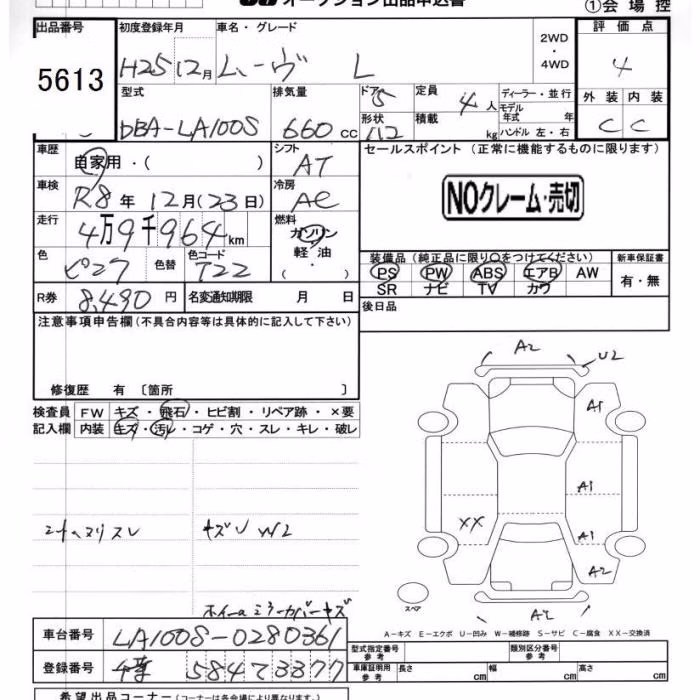 オークション出品申込書
①会場控
出品番号 初度登録年月 車名・グレード 2WD・4WD 評価点
5613 H25 12月 ムーヴ L 4
型式 排気量 ドア 5 定員 4人 ディーラー・並行 外装 内装
モデル年式 年
DBA-LA100S 660cc 形状 積載 kg ハンドル 左・右 C C
車歴 自家用・( ) シフト AT セールスポイント (正常に機能するものに限ります)
車検 R8年12月(23日) 冷房 AC NOクレーム・売切
走行 4万9千964km 燃料 ガソリン
軽油
・( )
色 ピンク 色替 色コード T22 装備品 (純正品に限り○をつけてください) 新車保証書
PS PW ABS エアB AW 有・無
SR ナビ TV カワ
R券 8,490円 名変通知期限 月 日 後日品
注意事項申告欄(不具合内容等は具体的に記入して下さい)
修復歴 有 〔箇所 〕
検査員 FW キズ・飛石・ヒビ割・リペア跡・×要
記入欄 内装 キズ・汚レ・コゲ・穴・スレ・キレ・破レ
A2
U2
A1
A1
XX
A1
A2
スレ キズU W2
ホイールミラーカバーキズ
スペア
A2
A-キズ E-エクボ U-凹み W-補修跡 S-サビ C-腐食 XX-交換済
車台番号 LA100S-0280361
型式指定番号 参考 類別区分番号 参考
登録番号 58473377
車庫証明用 参考 長さ cm 幅 cm 高さ cm
希望出品コーナー (コーナーは各会場により異なります。)